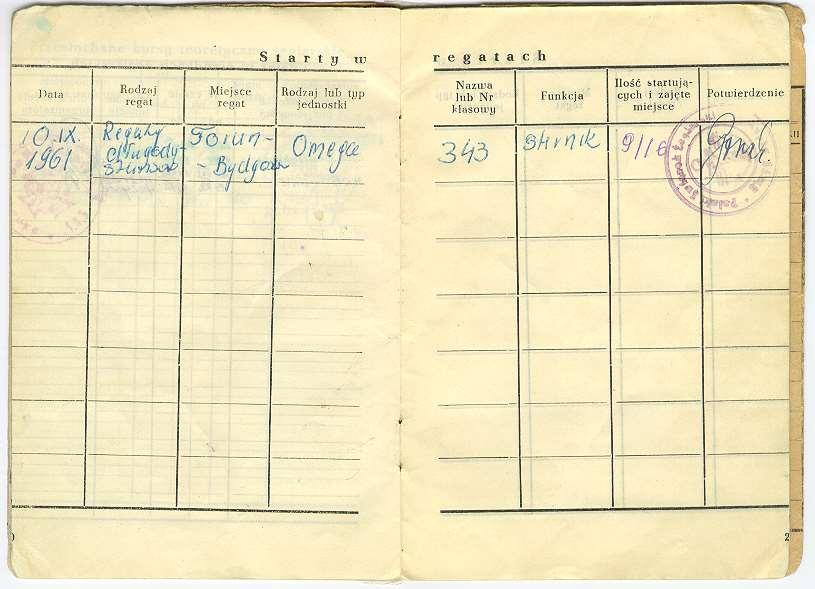 Starty w regatach
Data
Rodzaj
regat
Miejsce
regat
Rodzaj lub typ
jednostki
Nazwa
lub Nr
klasowy
Funkcja
Ilość startują-
cych i zajęte
miejsce
Potwierdzenie
10.IX.
1961
Regaty
Długody-
stansow
Toruń-
- Bydgoszcz
Omega
343
sternik
9/16